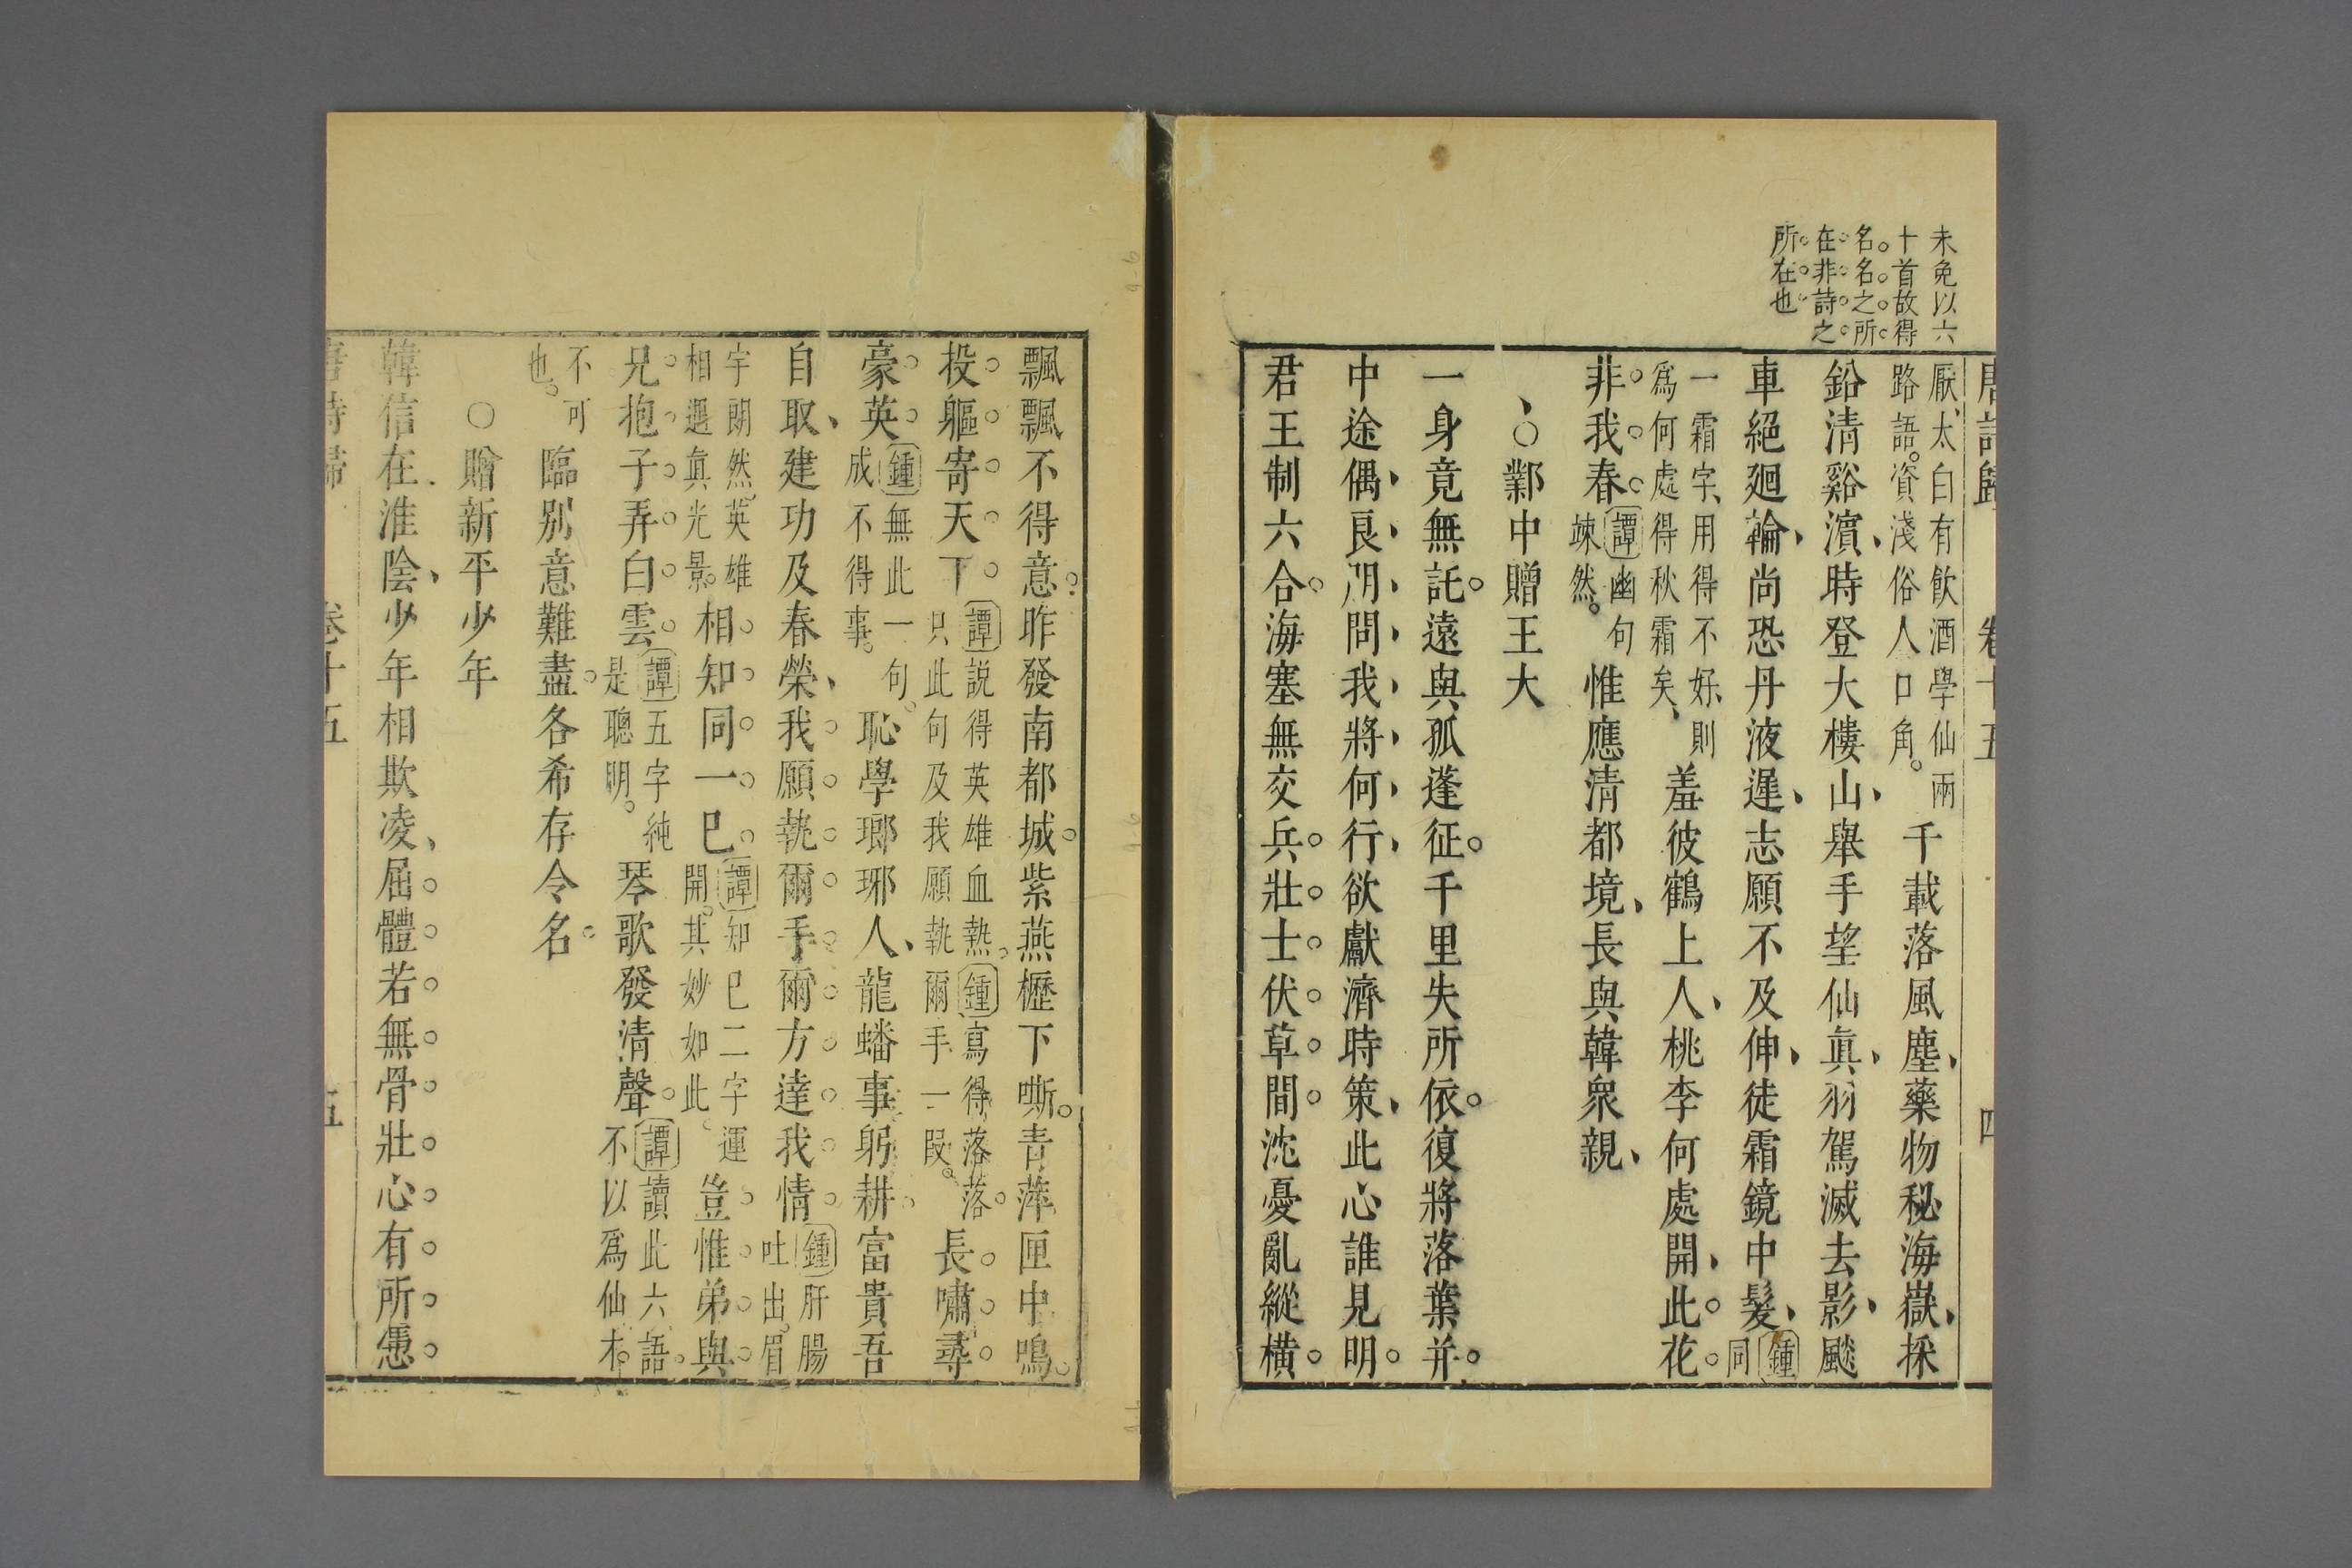 未免以六
十首故得
名。名。之。所。
在。非。詩。之。
所。在。也。
唐詩歸 卷十五 四
厭、太白有飮酒學仙兩
路語。資淺俗人口角。
千載落風塵、藥物秘海嶽、採
鉛清谿濵、時登大樓山、舉手望仙眞、羽駕滅去影、飈
車絕廻輪、尚恐丹液遲、志願不及伸、徒霜鏡中髮、鍾同
一霜字、用得不好則
爲何處得秋霜矣、
羞彼鶴上人、桃李何處開、此。花。
非。我。春。
譚幽句
竦然。
惟應清都境、長與韓衆親、
○鄴中贈王大
一身竟無託。遠與孤蓬征。千里失所依。復將落葉并。
中途偶、良、朋、問、我、將、何、行、欲獻濟時策、此心誰見明。
君王制六合。海塞無交兵。壯。士。伏。草。間。沈憂亂縱橫。
飄飄不得意。昨發南都城。紫燕櫪下嘶。青萍匣中鳴。
投。軀。寄。天。下。
譚說得英雄血熱。鍾寫得落落。
只此句及我願執爾手一段。
長。嘯。尋。
豪。英。
鍾無此一句。
成不得事。
恥學瑯琊人、龍蟠事躬耕。富貴吾
自取、建功及春榮、我。願。執。爾。手。爾。方。達。我。情。
鍾肝腸
吐出。眉
宇朗然、英雄
相遇眞光景。
相。知。同。一。己。
譚知己二字運
開。其妙如此。
豈。惟。弟。與。
兄。抱。子。弄。白。雲。
譚五字純
是聰明。
琴歌發清聲。
譚讀此六語。
不以爲仙木。
不可
也。
臨別意難盡。各希存令名。
○贈新平少年
韓信在淮陰、少年相欺凌、屈。體。若。無。骨。壯。心。有。所。憑。
唐詩歸 卷十五 五